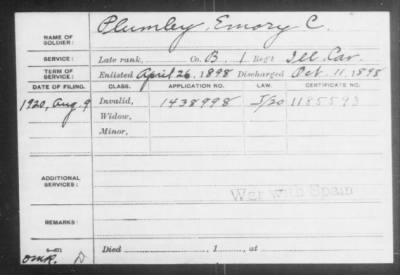 Plumley, Emory C.
NAME OF
SOLDIER:
SERVICE: Late rank, Co. B, 1 Reg't Ill. Cav.
TERM OF
SERVICE: Enlisted April 26, 1898 Discharged Oct. 11, 1898
DATE OF FILING. CLASS. APPLICATION NO. LAW. CERTIFICATE NO.
1920, Aug. 9 Invalid, 1438998 J/20 1185593
Widow,
Minor,
ADDITIONAL
SERVICES:
War with Spain
REMARKS:
Died , 1 , at